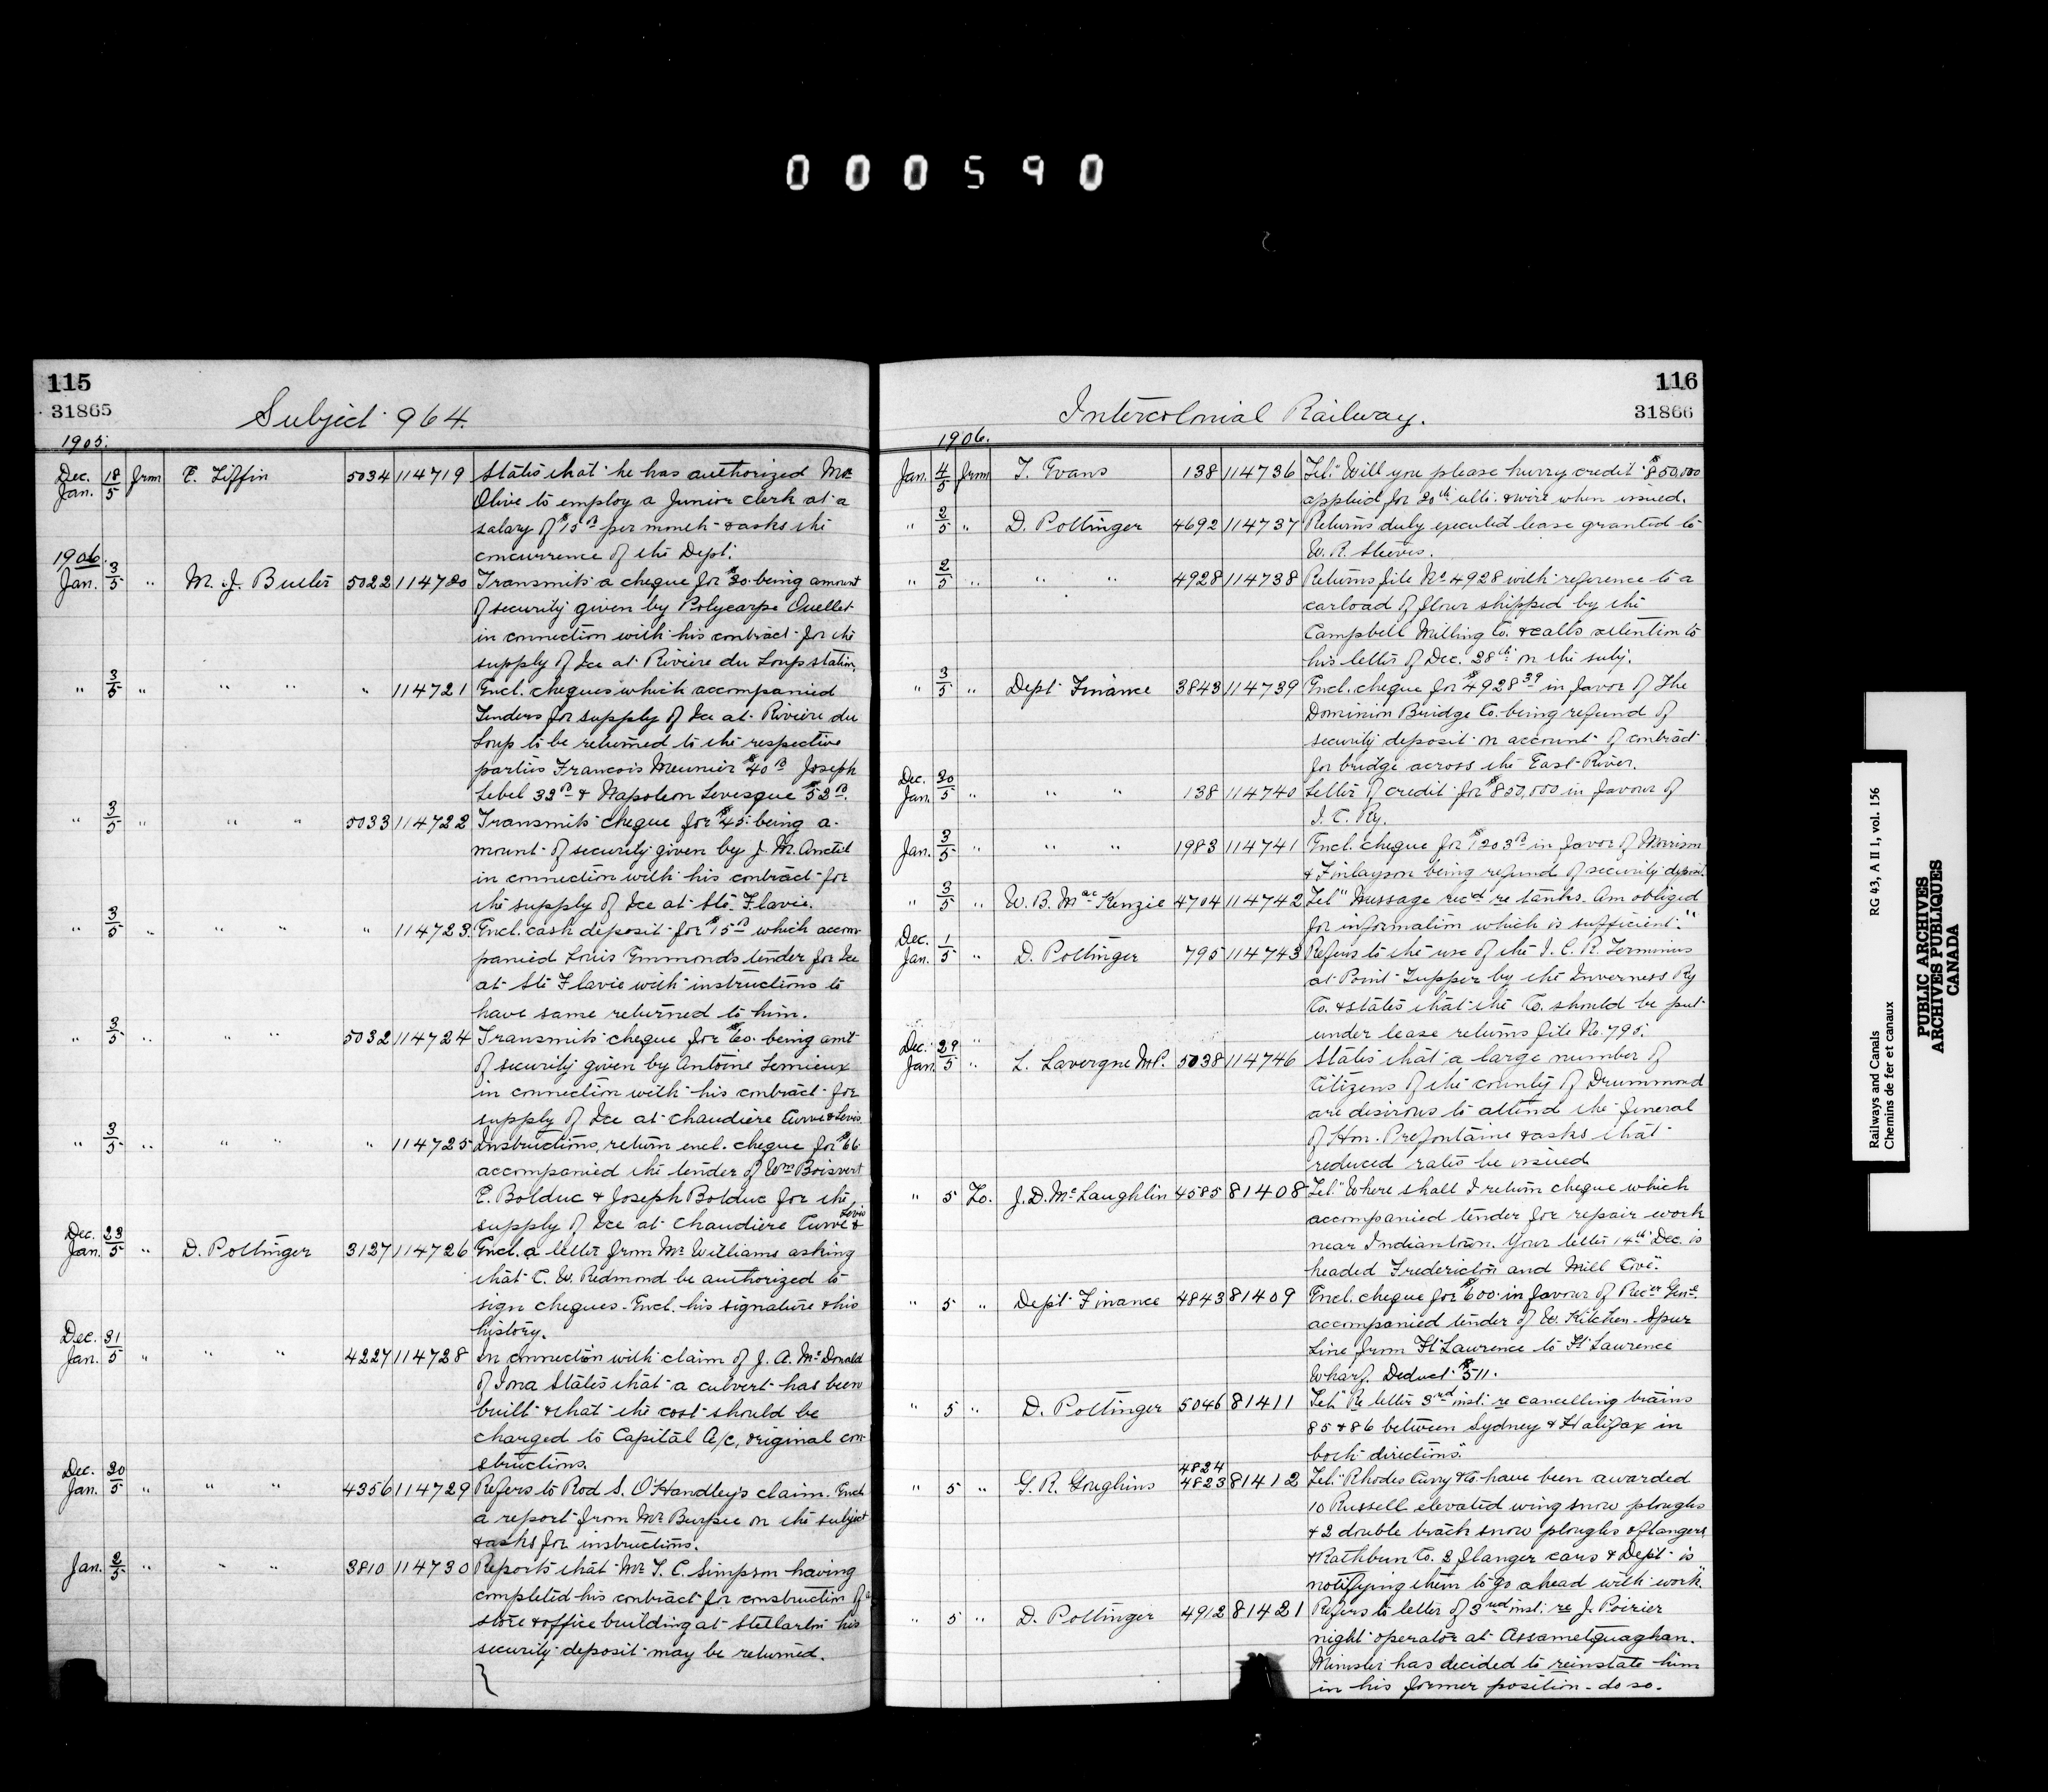 000590
115
31865
Subject 964.
1905.
Dec. 18 Jan. 5 from E. Tiffin 5034 114719 States that he has authorized Mr.
Olive to employ a Junior clerk at a
salary of $15 00 per month & asks the
concurrence of the Dept.
1906.
Jan. 3/5 " M. J. Butler 5022 114720 Transmits a cheque for $30. being amount
of security given by Polycarpe Ouellet
in connection with his contract for the
supply of Ice at Rivière du Loup station.
" 3/5 " " " " 114721 Encl. cheques which accompanied
Tenders for supply of Ice at Rivière du
Loup to be returned to the respective
parties Francois Meunier $40 00 Joseph
Lebel 33 00 & Napoleon Levesque $53 00.
" 3/5 " " " 5033 114722 Transmits cheque for $45. being a-
mount of security given by J. M. Anctil
in connection with his contract for
the supply of Ice at Ste. Flavie.
" 3/5 " " " " 114723 Encl. cash deposit for $15 00 which accom-
panied Louis Emmonds tender for Ice
at Ste Flavie with instructions to
have same returned to him.
" 3/5 " " " 5032 114724 Transmits cheque for $60. being amt
of security given by Antoine Lemieux
in connection with his contract for
supply of Ice at Chaudiere Curve & Levis
" 3/5 " " " " 114725 Instructions, return encl. cheque for $66
accompanied the tender of Wm Boisvert
E. Bolduc & Joseph Bolduc for the
supply of Ice at Chaudiere Curve & Levis
Dec. 23 Jan. 5 " D. Pottinger 3127 114726 Encl. a letter from Mr Williams asking
that C. W. Redmond be authorized to
sign cheques. Encl. his signature & his
history.
Dec. 31 Jan. 5 " " " 4227 114728 In connection with claim of J. A. McDonald
of Iona States that a culvert has been
built & that the cost should be
charged to Capital A/c, original con-
structions.
Dec. 30 Jan. 5 " " " 4356 114729 Refers to Rod S. O'Handley's claim. Encl
a report from Mr Burpee on the subject
& asks for instructions.
Jan. 2/5 " " " 3810 114730 Reports that Mr T. C. Simpson having
completed his contract for construction of a
store & office building at Stellarton his
security deposit may be returned.
116
31866
Intercolonial Railway.
1906.
Jan. 4/5 from T. Evans 138 114736 Tel. "Will you please hurry credit $850,000
applied for 20th ulti. & wire when issued.
" 2/5 " D. Pottinger 4692 114737 Returns duly executed lease granted to
W. R. Steeves.
" 2/5 " " " 4928 114738 Returns file No 4928 with reference to a
carload of flour shipped by the
Campbell Milling Co. & calls attention to
his letter of Dec. 28th on the subj.
" 3/5 " Dept Finance 3843 114739 Encl. cheque for $4928 39 in favor of The
Dominion Bridge Co. being refund of
security deposit on account of contract
for bridge across the East River.
Dec. 30 Jan. 5 " " " 138 114740 Letter of credit for $850,000 in favour of
I. C. Ry.
Jan. 3/5 " " " 1983 114741 Encl. cheque for $1203 00 in favor of Morrison
& Finlayson being refund of security deposit.
" 3/5 " W. B. MacKenzie 4704 114742 Tel "Message rec'd re tanks. Am obliged
for information which is sufficient."
Dec. 1 Jan. 5 " D. Pottinger 795 114743 Refers to the use of the I. C. R. Terminus
at Point Tupper by the Inverness Ry
Co. & states that the Co. should be put
under lease returns file No. 795.
Dec. 29 Jan. 5 " L. Lavergne M.P. 5038 114746 States that a large number of
Citizens of the county of Drummond
are desirous to attend the funeral
of Hon. Prefontaine & asks that
reduced rates be issued
" 5 To. J. D. McLaughlin 4585 81408 Tel. "Where shall I return cheque which
accompanied tender for repair work
near Indiantown. Your letter 14th Dec. is
headed Fredericton and Mill Cove."
" 5 " Dept Finance 4843 81409 Encl. cheque for $600. in favour of Recr Genl.
accompanied tender of W. Kitchen - Spur
Line from Ft Lawrence to Ft Lawrence
Wharf. Deduct $511.
" 5 " D. Pottinger 5046 81411 Tel. "Re letter 3rd inst. re cancelling trains
85 & 86 between Sydney & Halifax in
both directions."
4824
" 5 " G. R. Joughins 4823 81412 Tel. "Rhodes Curry & Co. have been awarded
10 Russell elevated wing snow ploughs
& 2 double track snow ploughs & flangers
& Rathbun Co. 3 flanger cars & Dept is
notifying them to go ahead with work."
" 5 " D. Pottinger 4912 81421 Refers to letter of 3rd inst. re J. Poirier
night operator at Assametquaghan.
Minister has decided to reinstate him
in his former position - do so.
Railways and Canals RG 43, A II 1, vol. 156
Chemins de fer et canaux
PUBLIC ARCHIVES
ARCHIVES PUBLIQUES
CANADA